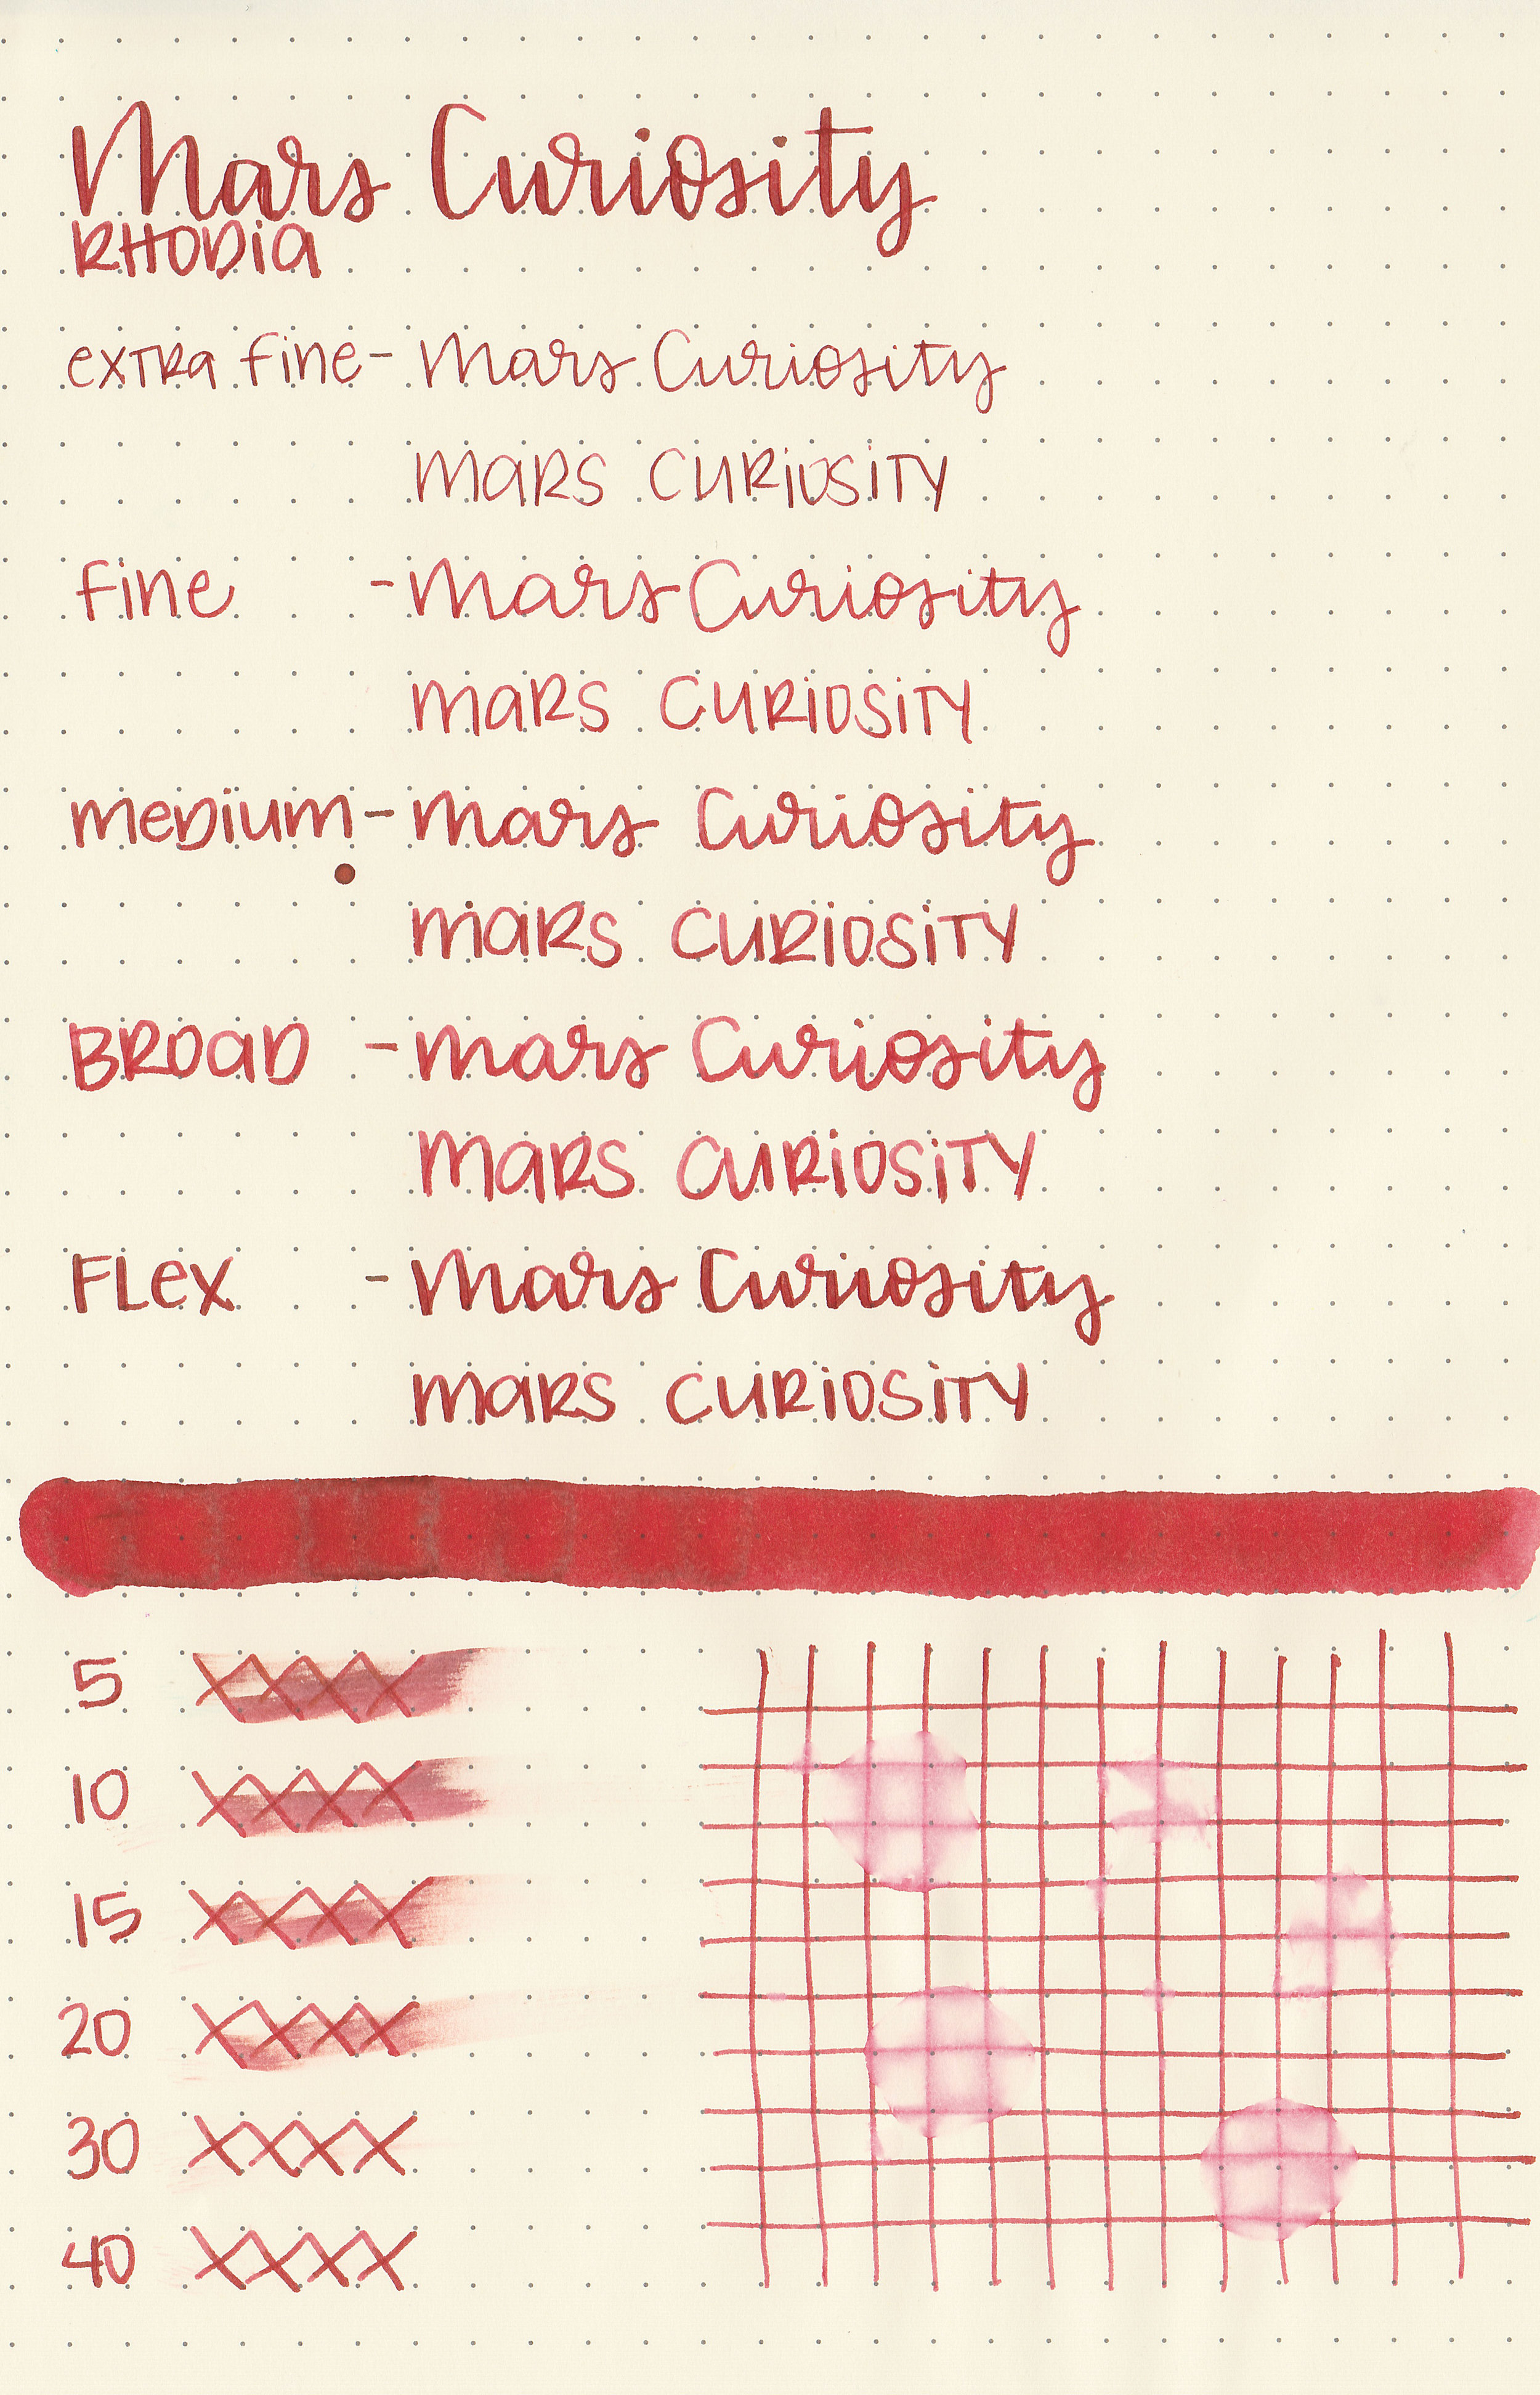 Mars Curiosity
RHODiA
exTRa fine - Mars Curiosity
MaRS CURiOSiTY
fine - Mars Curiosity
MaRS CURiOSiTY
meDium - Mars Curiosity
MaRS CURiOSiTY
BROaD - Mars Curiosity
MaRS CURiOSiTY
FLex - Mars Curiosity
MaRS CURiOSiTY
5 XXXX
10 XXXX
15 XXXX
20 XXXX
30 XXXX
40 XXXX